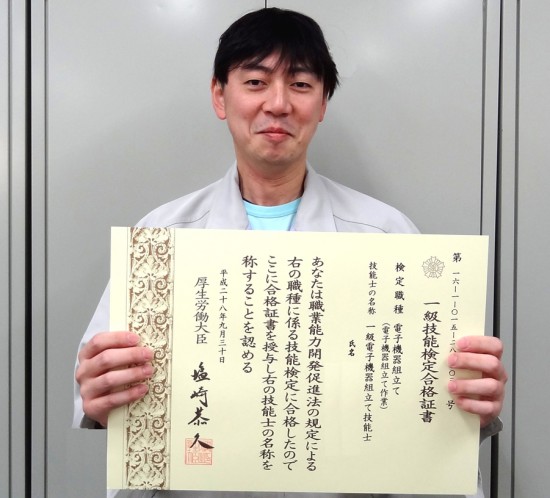 第 一六-一-〇一五-二八-〇〇 号
一級技能検定合格証書
検定職種 電子機器組立て
(電子機器組立て作業)
技能士の名称 一級電子機器組立て技能士
氏名
あなたは職業能力開発促進法の規定による
右の職種に係る技能検定に合格したので
ここに合格証書を授与し右の技能士の名称を
称することを認める
平成二十八年九月三十日
厚生労働大臣 塩崎恭久